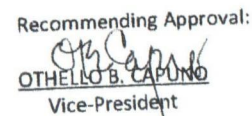 Recommending Approval:
OTHELLO B. CAPUNO
Vice-President